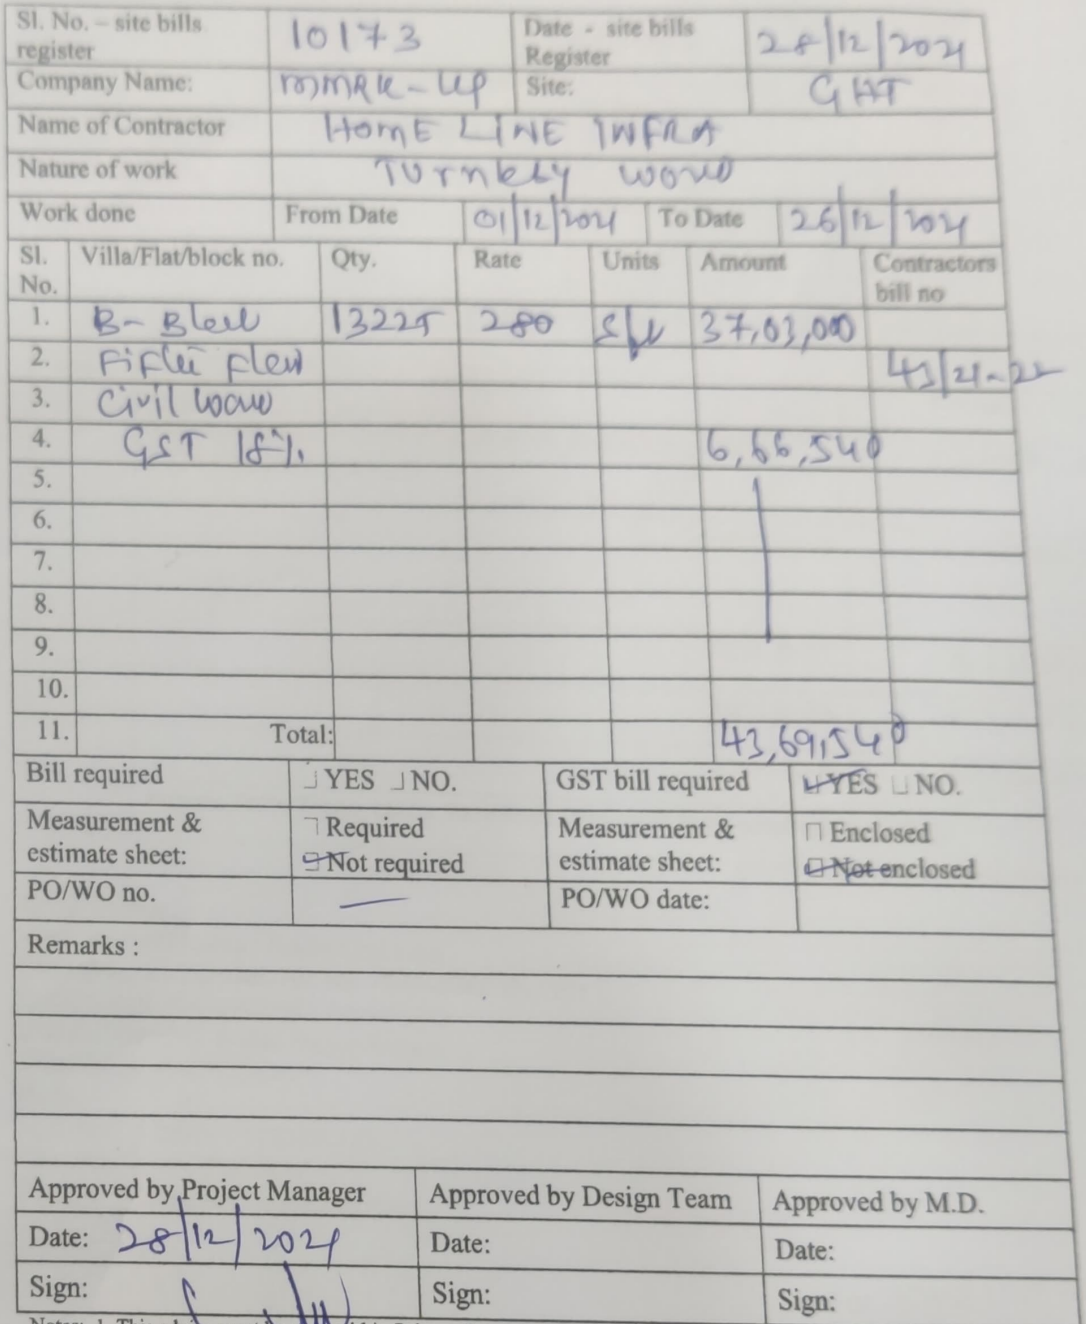 Sl. No. – site bills register 10173 Date - site bills Register 28/12/2021
Company Name: MMRK-UP Site: GHT
Name of Contractor HOME LINE INFRA
Nature of work Turnkey work
Work done From Date 01/12/2021 To Date 26/12/2021
Sl. No. Villa/Flat/block no. Qty. Rate Units Amount Contractors bill no
1. B-Block 13225 280 sft 37,03,000
2. Fifth floor 43/21-22
3. Civil work
4. GST 18% 6,66,540
5.
6.
7.
8.
9.
10.
11. Total: 43,69,540
Bill required YES NO. GST bill required YES NO.
Measurement & estimate sheet: Required Not required Measurement & estimate sheet: Enclosed Not enclosed
PO/WO no. — PO/WO date:
Remarks :
Approved by Project Manager Approved by Design Team Approved by M.D.
Date: 28/12/2021 Date: Date:
Sign: Sign: Sign: